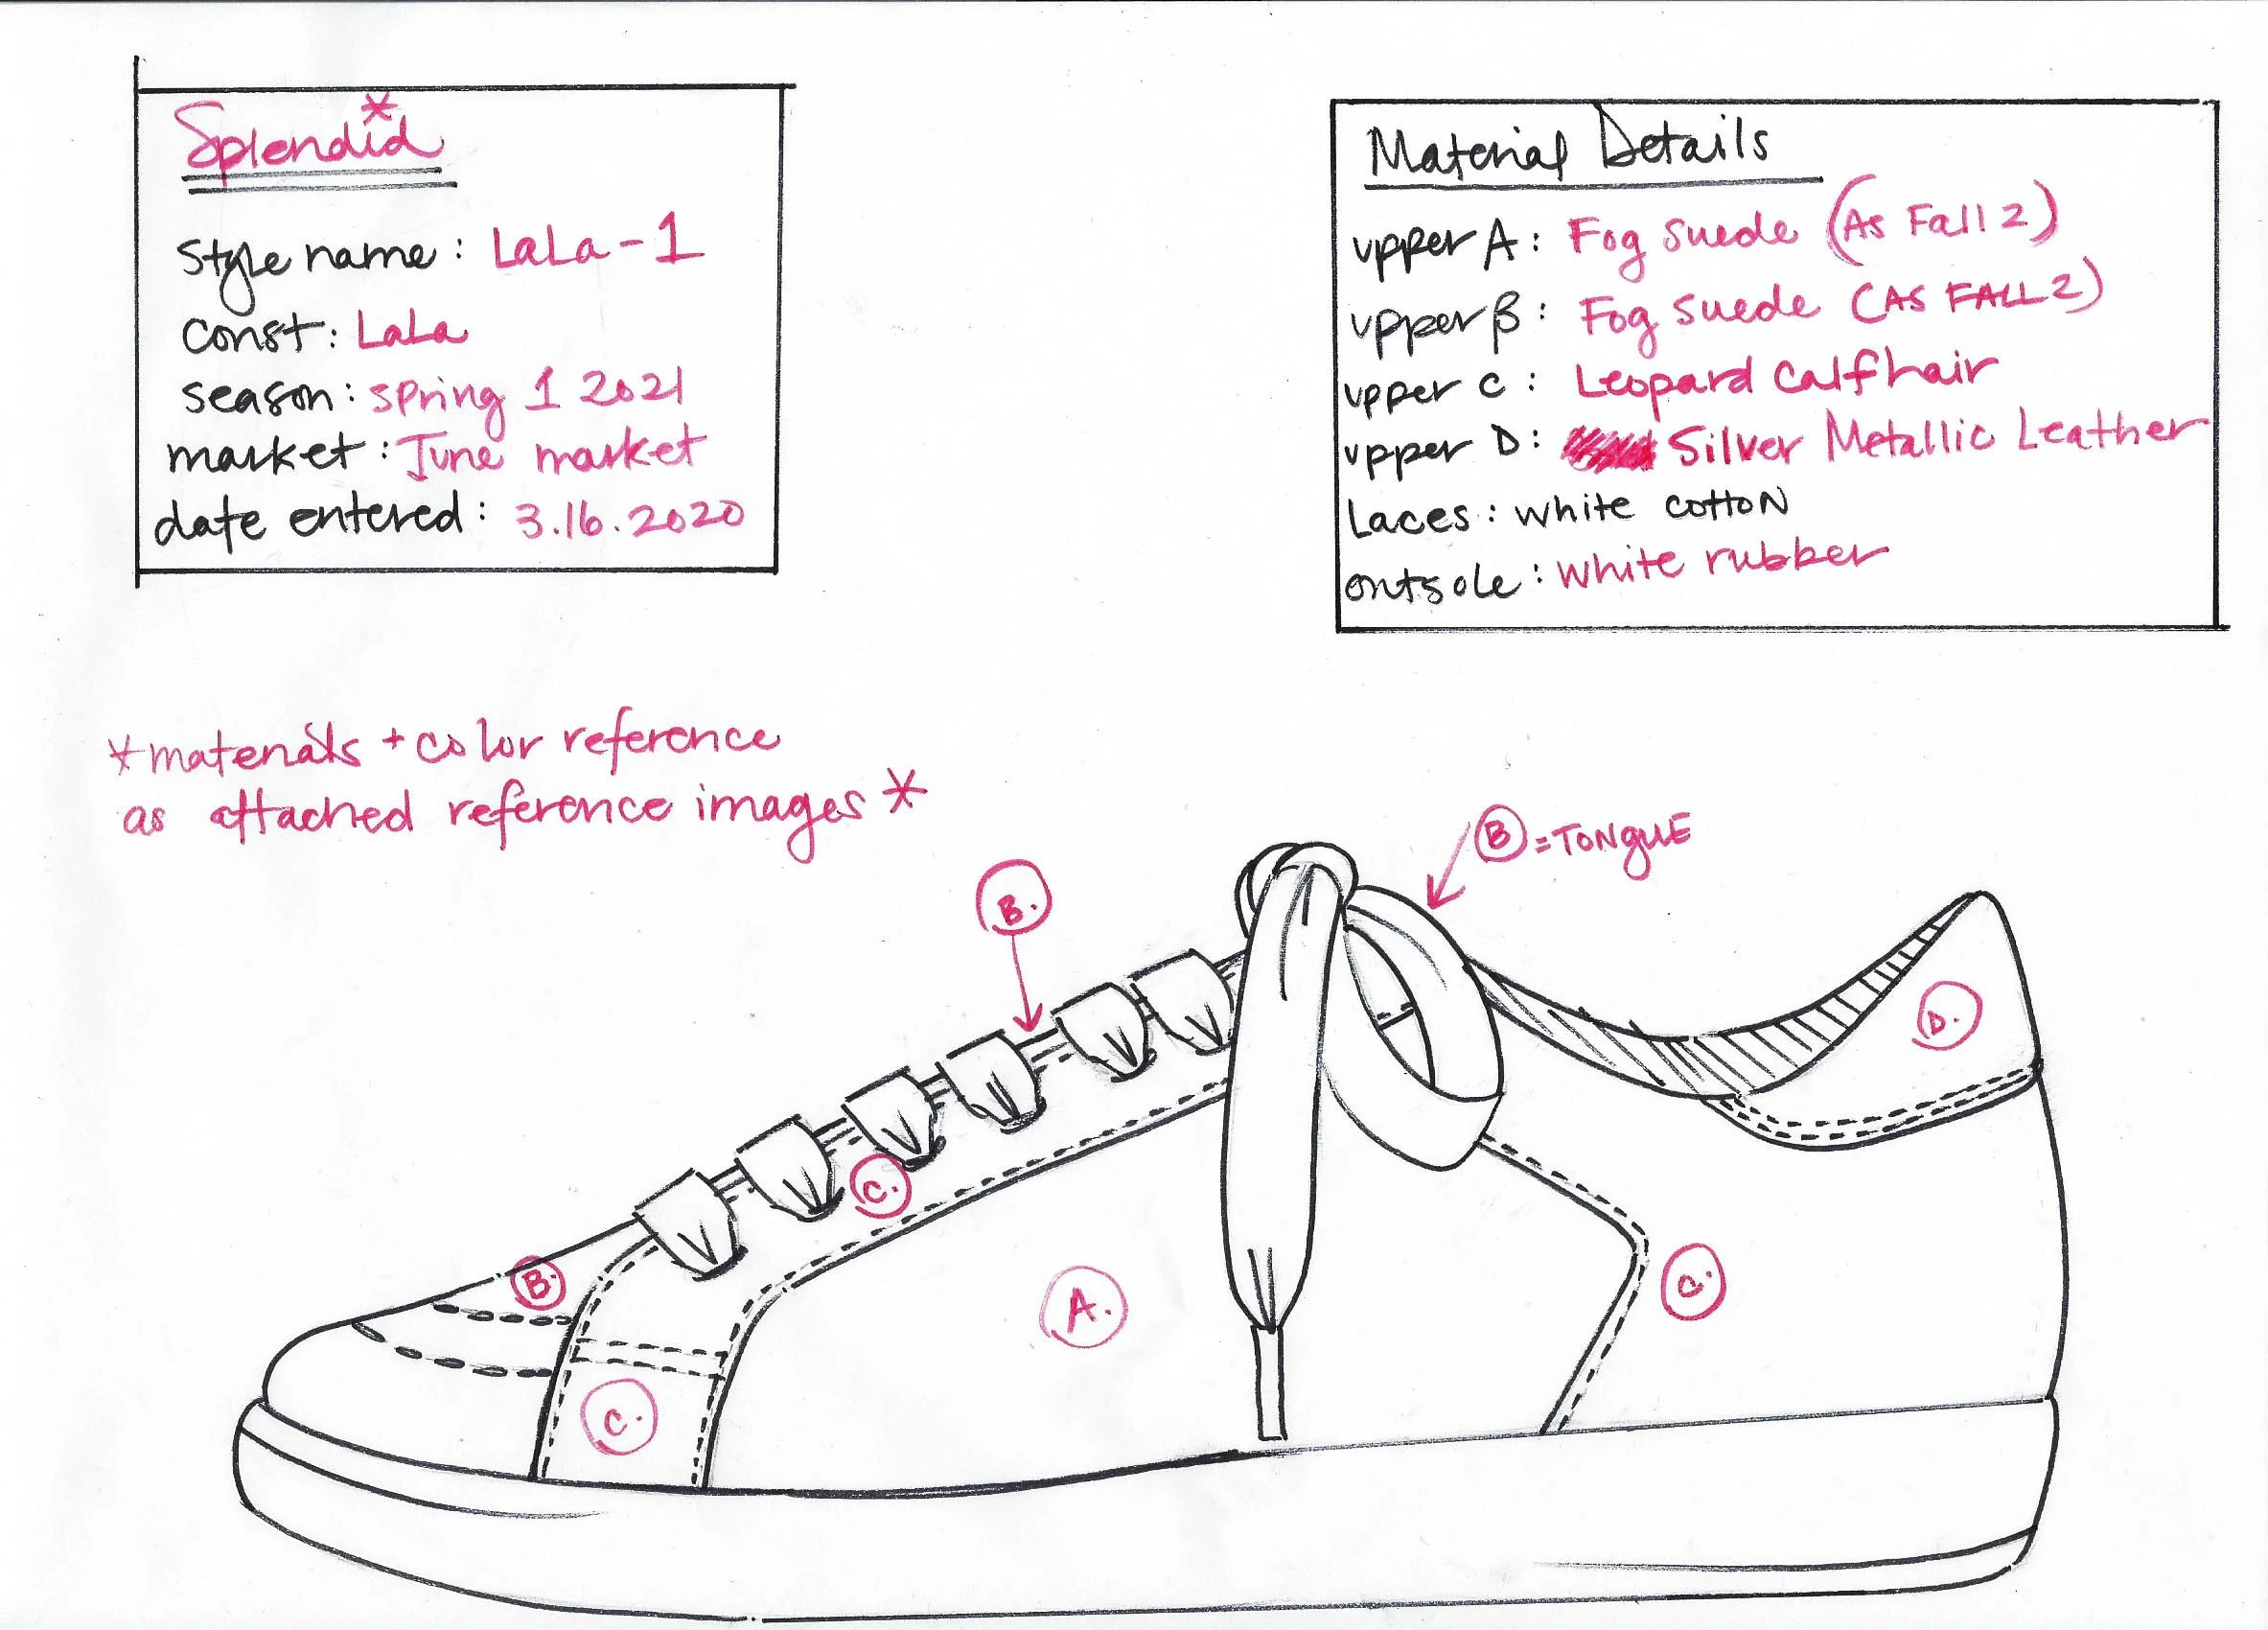 Splendid*
Style name: LaLa-1
const: LaLa
season: spring 1 2021
market: June market
date entered: 3.16.2020
Material Details
upper A: Fog suede (As Fall 2)
upper B: Fog suede (AS FALL 2)
upper C: Leopard Calfhair
upper D: Silver Metallic Leather
Laces: white cotton
outsole: white rubber
*materials + color reference
as attached reference images*
B = TONGUE
B.
D.
C.
B.
C.
A.
C.